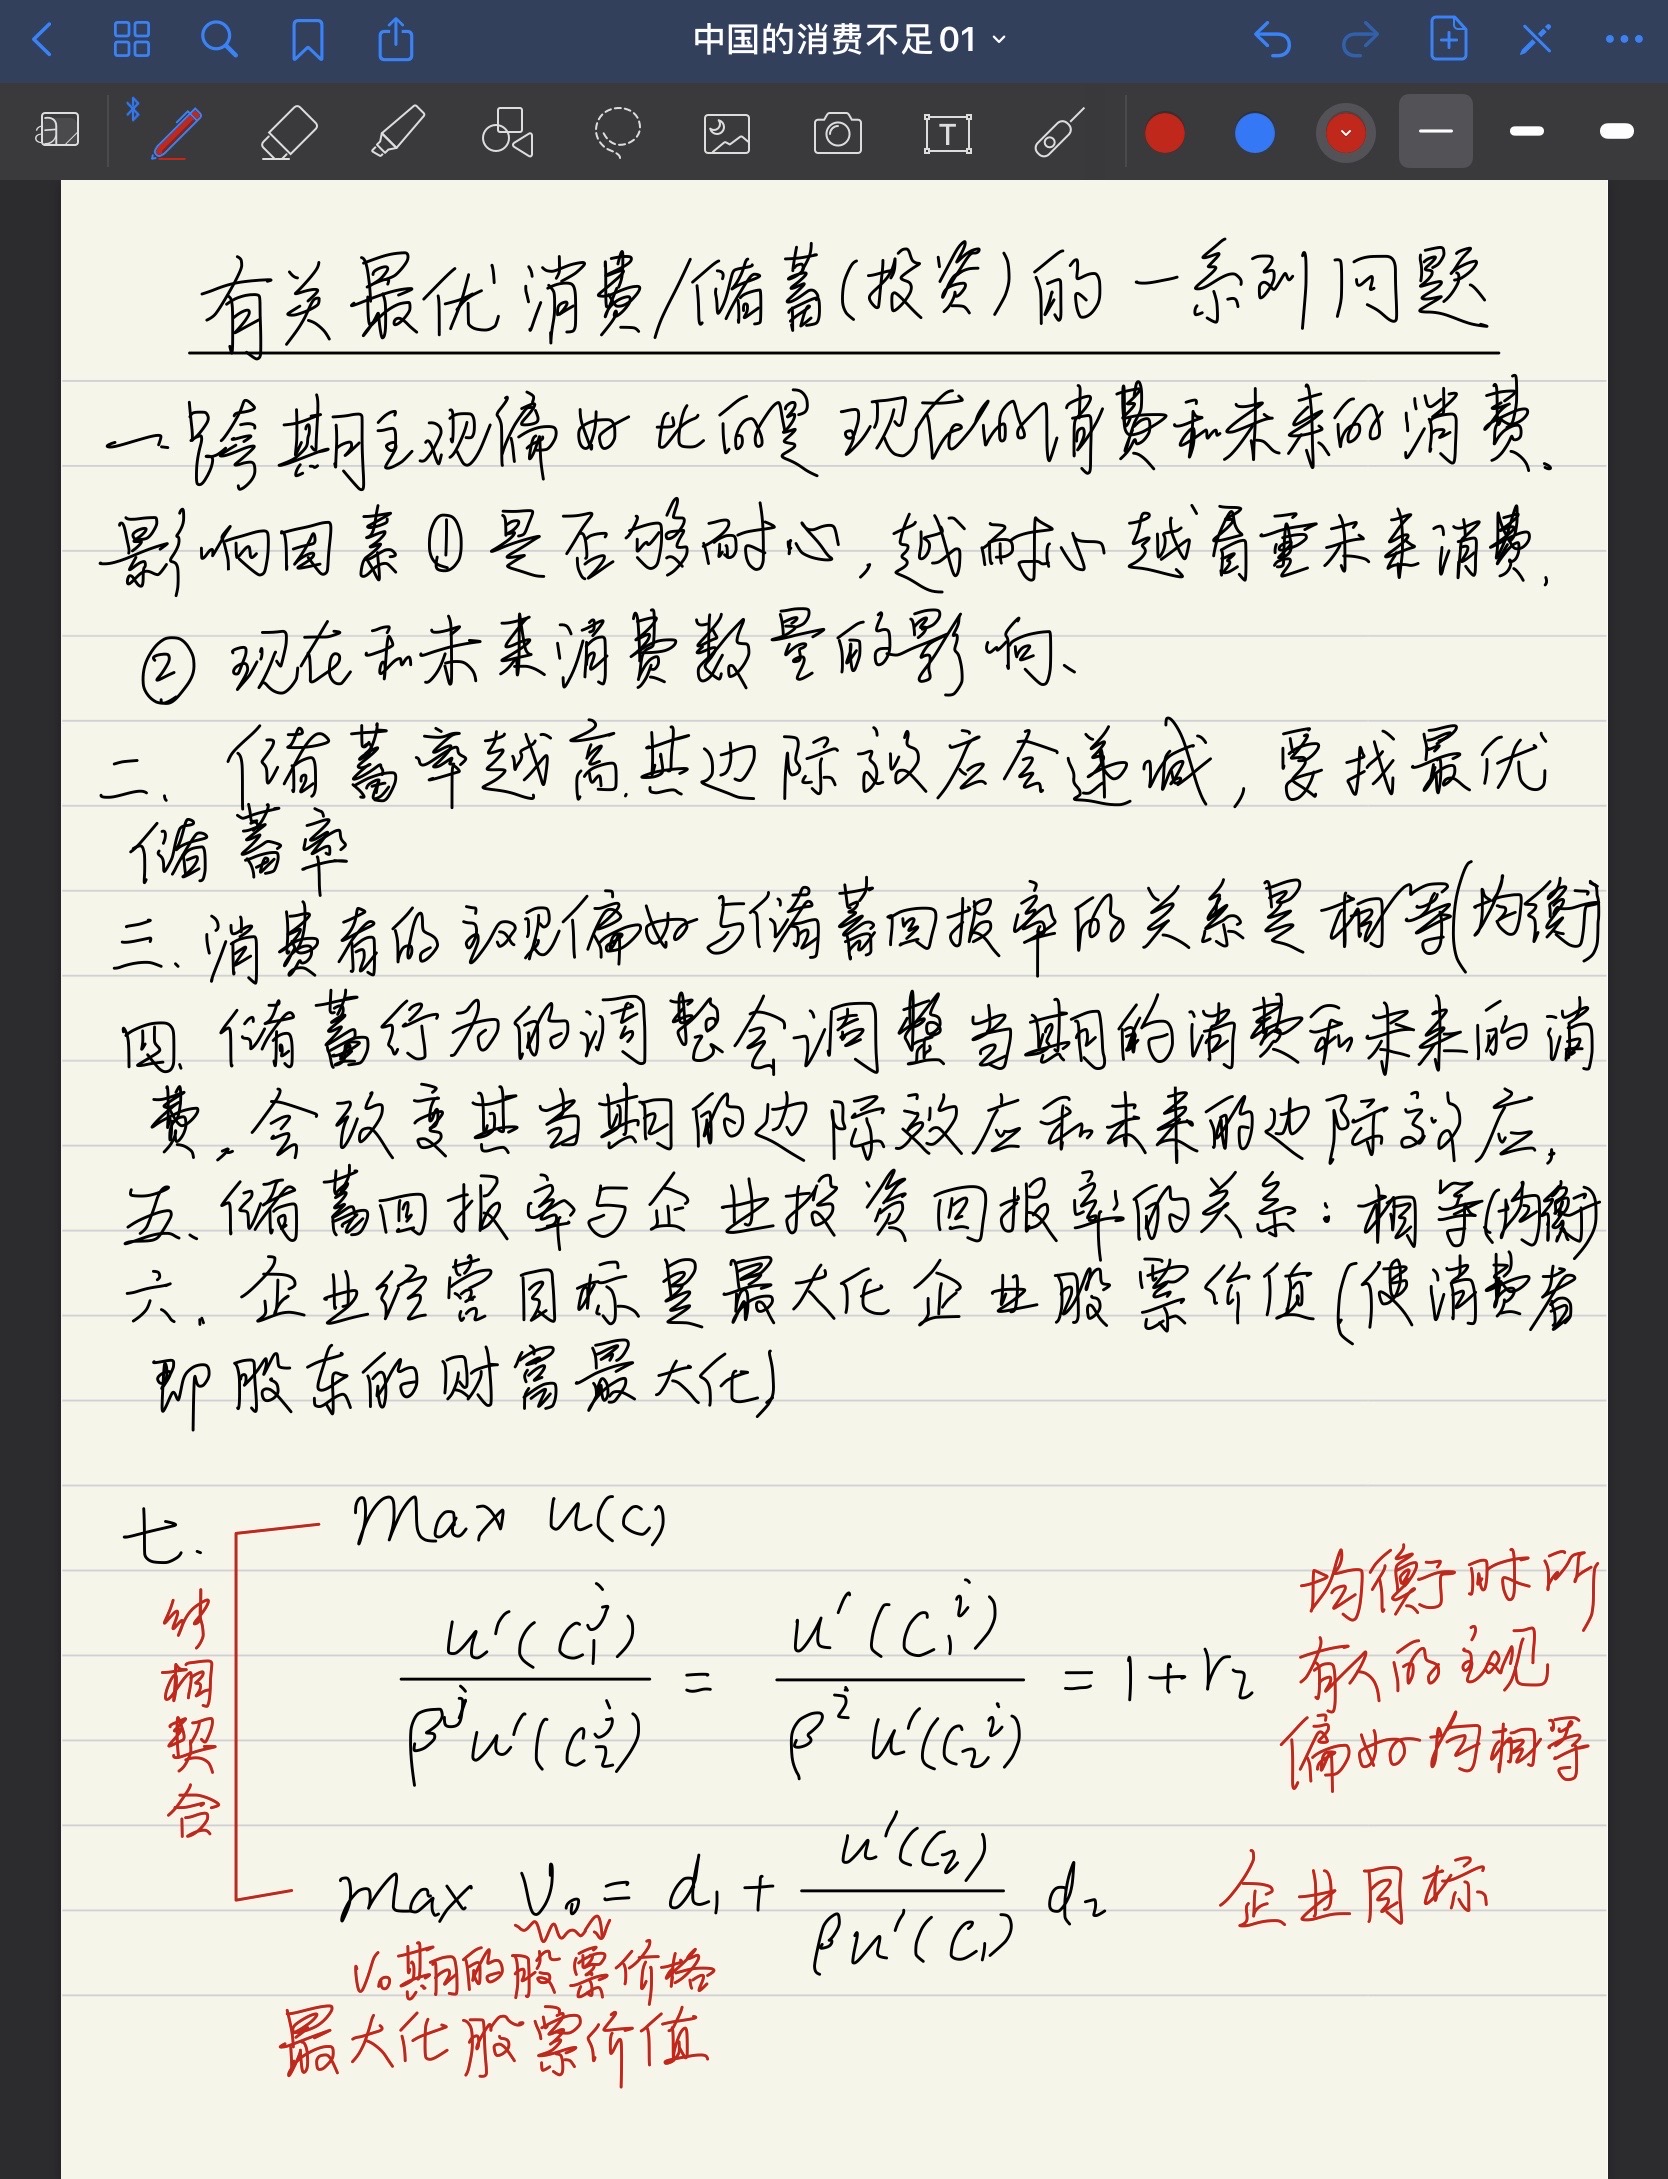 中国的消费不足01
T
有关最优消费/储蓄(投资)的一系列问题
一跨期主观偏好 比的是 现在的消费和未来的消费.
影响因素 ① 是否够耐心, 越耐心越看重未来消费.
② 现在和未来消费数量的影响、
二. 储蓄率越高.其边际效应会递减, 要找最优
储蓄率
三.消费者的主观偏好与储蓄回报率的关系是相等(均衡)
四.储蓄行为的调整会调整当期的消费和未来的消
费.会改变其当期的边际效应和未来的边际效应.
五.储蓄回报率与企业投资回报率的关系: 相等(均衡)
六. 企业经营目标是最大化企业股票价值(使消费者
即股东的财富最大化)
七. Max u(c)
u'(c₁ʲ) / βʲu'(c₂ʲ) = u'(c₁ⁱ) / βⁱu'(c₂ⁱ) = 1+r₂
均衡时所
有人的主观
偏好均相等
相契合
max V₀ = d₁ + u'(c₂) / βu'(c₁) d₂ 企业目标
V₀期的股票价格
最大化股票价值